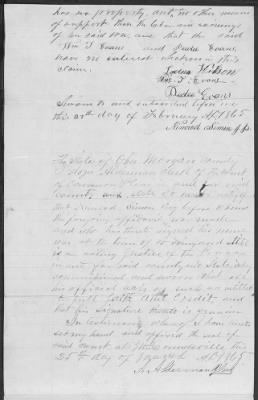 has no property, and no other means
of support than the labor and earnings
of her said son, and that she said
Wm T Evans and Dudu Evans,
have no interest whatever in this
claim.
Wilson
Wm. T. Evans
Evans
Sworn to and subscribed before me
this day of February A.D. 1865
Simon J.P.
The State of Ohio Morgan County
I Hope Adderman Clerk of the Court
of Common Pleas in and for said
County and State do certify
that Simon Esq before whom
the foregoing affidavit was made
and who has thereto signed his name
was at the time of so doing and still
is an acting Justice of the Peace
in and for said County and State duly
commissioned and sworn that all
his official acts as such are entitled
to full faith and Credit, and
that his signature thereto is genuine
In testimony whereof I have hereto
set my hand and affixed the seal of
said court at McConnelsville this
25th day of AD 1865
Clerk